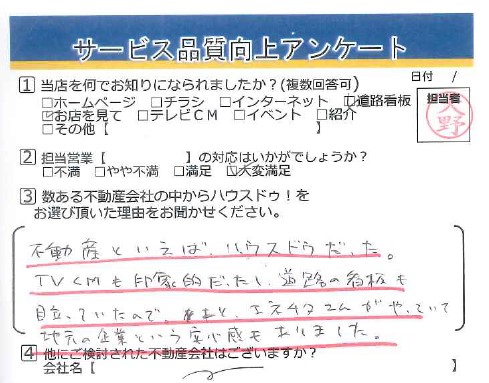 サービス品質向上アンケート
日付 /
1 当店を何でお知りになられましたか?(複数回答可)
□ホームページ □チラシ □インターネット ☑道路看板
☑お店を見て □テレビCM □イベント □紹介
□その他【 】
担当者
天野
2 担当営業【 】の対応はいかがでしょうか?
□不満 □やや不満 □満足 ☑大変満足
3 数ある不動産会社の中からハウスドゥ!を
お選び頂いた理由をお聞かせください。
不動産といえば、ハウスドゥだった。
TVCMも印象的だったし道路の看板も
目立っていたので。あと、エネチタさんがやっていて
地元の企業という安心感もありました。
4 他にご検討された不動産会社はございますか?
会社名【 】